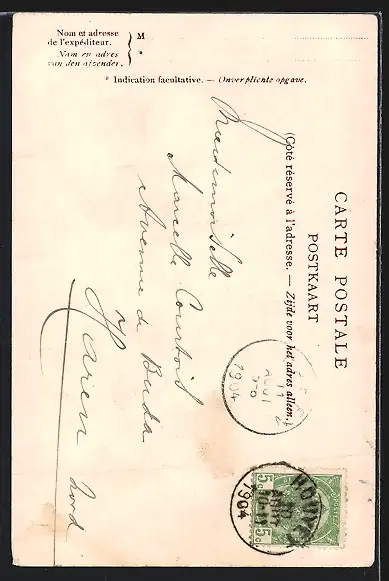 Nom et adresse
de l'expéditeur.
Nam en adres
van den afzender.
M
*
* Indication facultative. — Onverplichte opgave.
CARTE POSTALE
POSTKAART
(Côté réservé à l'adresse. — Zijde voor het adres alleen.)
Mademoiselle
Marcelle Courtoid
Avenue de Buda
Haren
Nord
11
AOUT
1904
HOUYET
10-11
1904
5c
5c